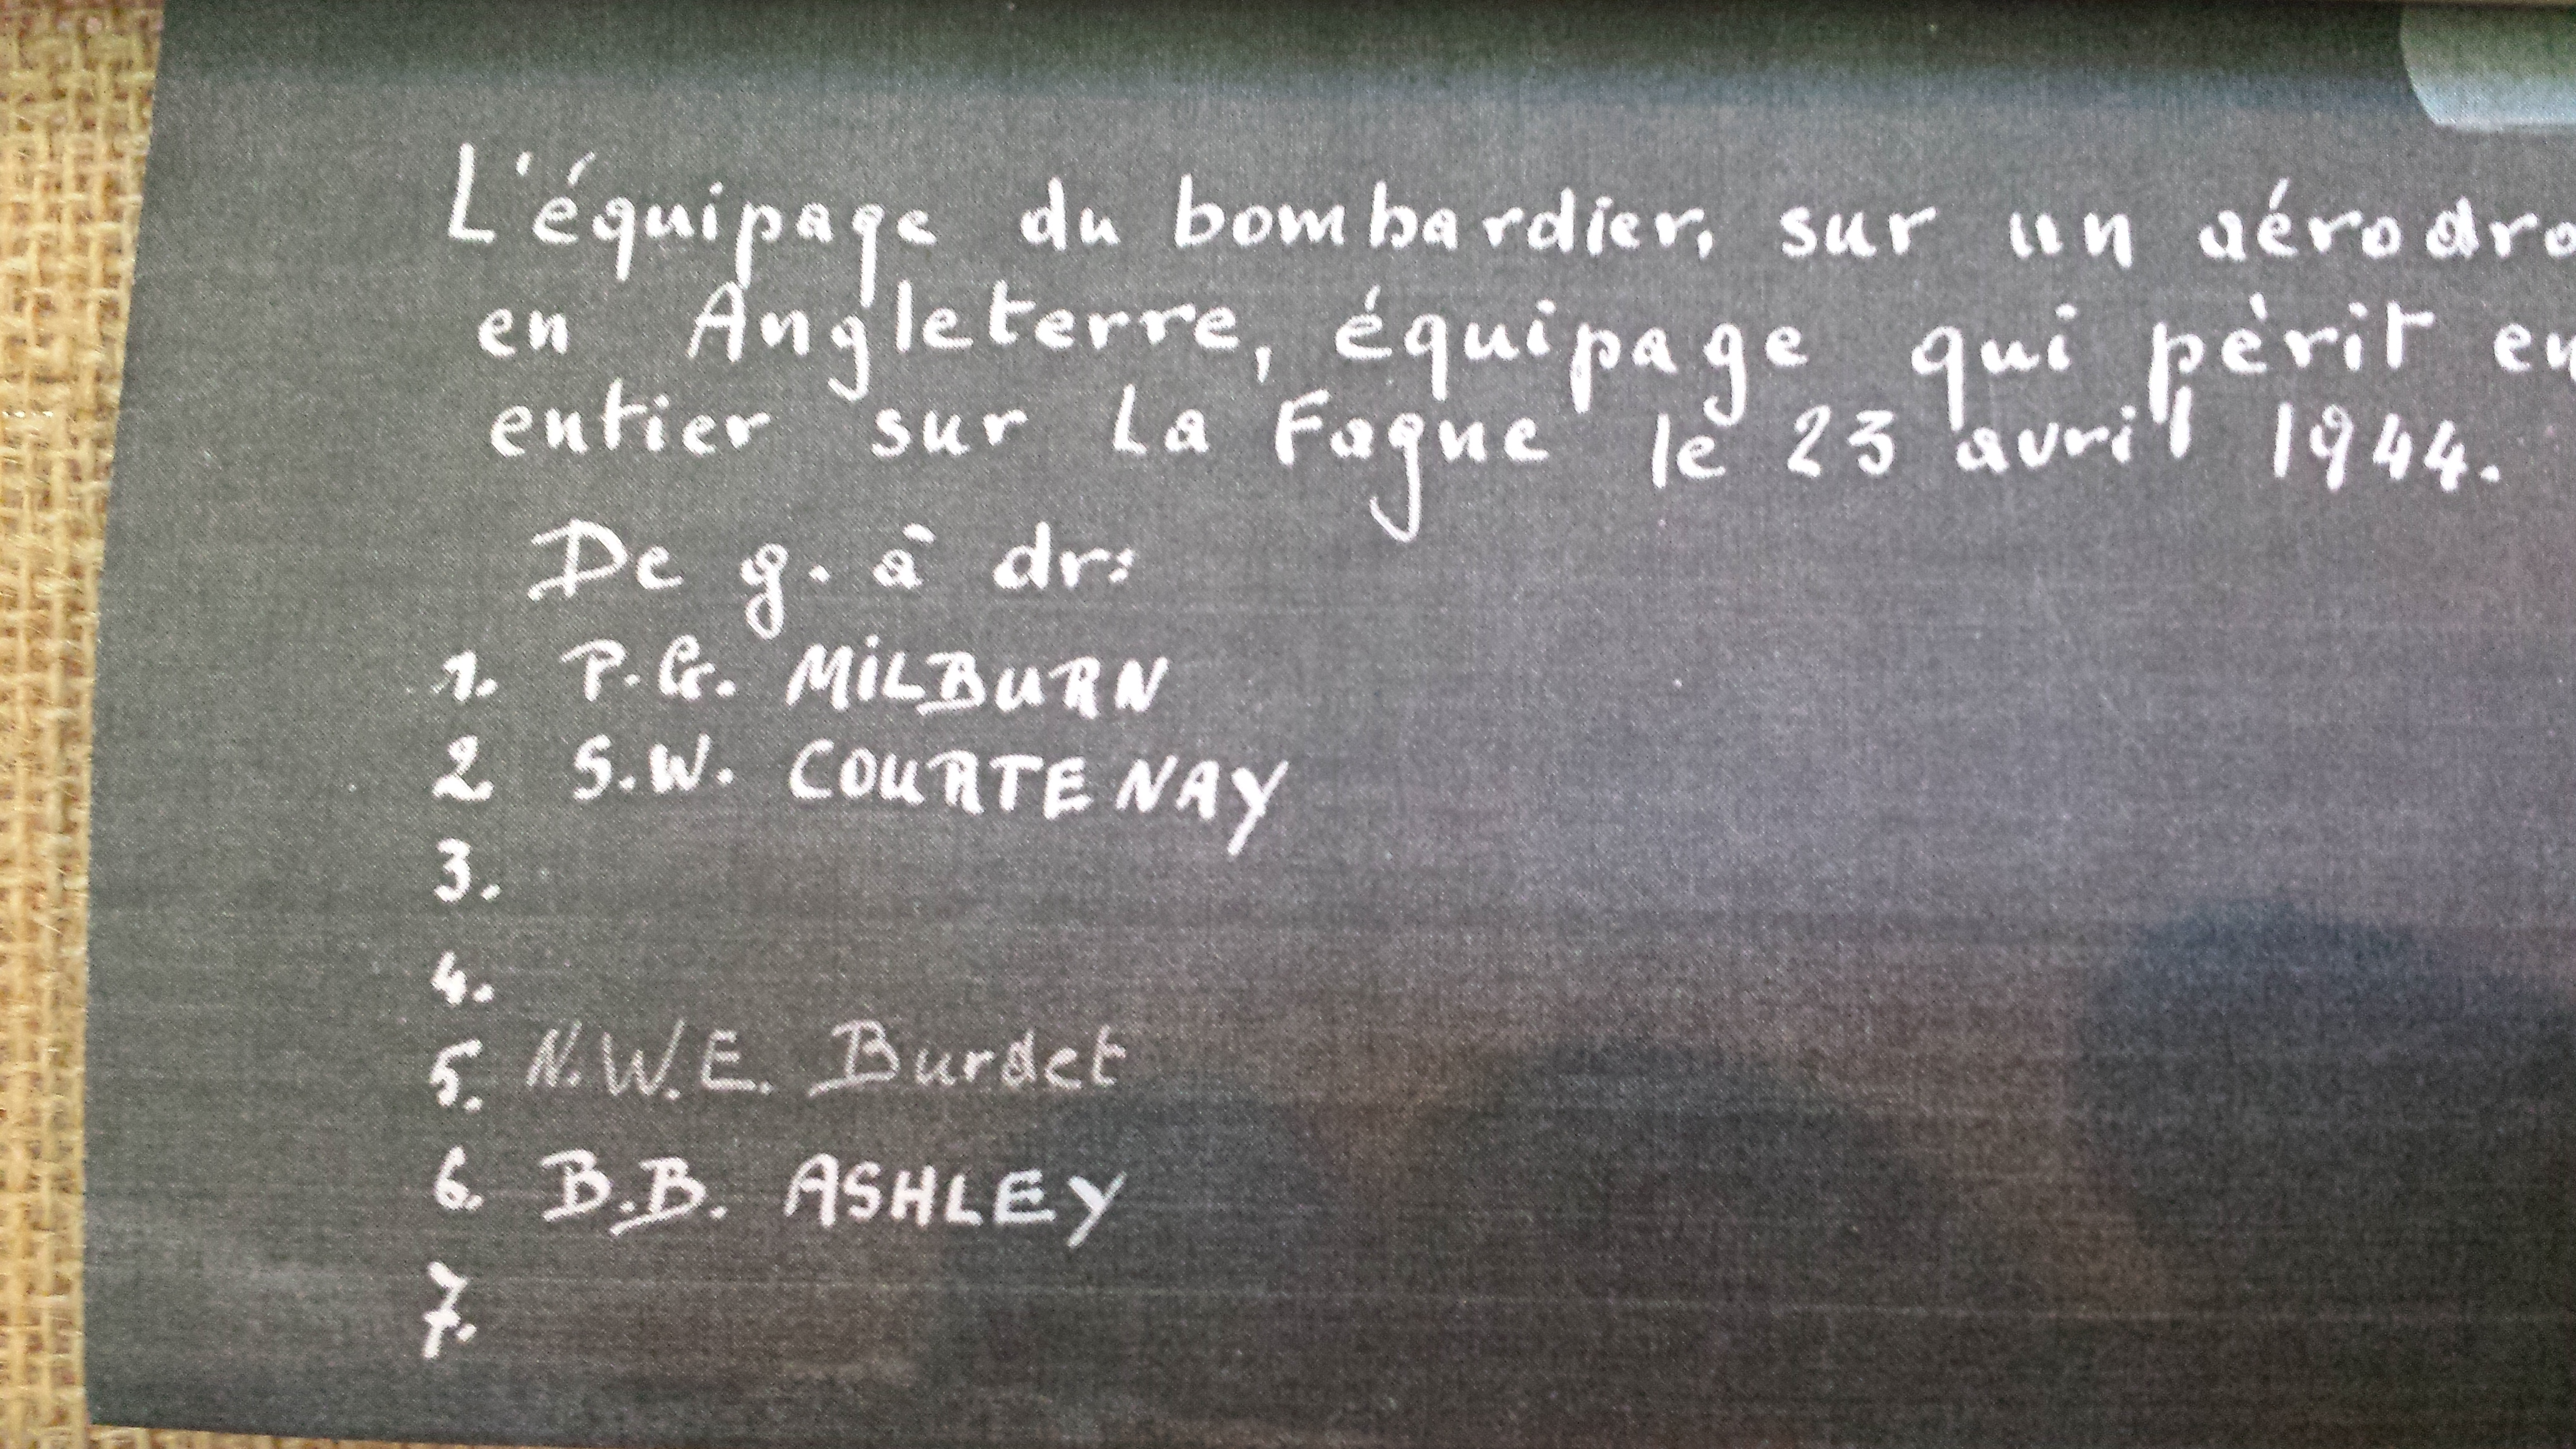 L'équipage du bombardier, sur un aérodro
en Angleterre, équipage qui pèrit en
entier sur La Fagne le 23 avril 1944.
De g. à dr:
1. P.G. MiLBURN
2 S.W. COURTENAY
3.
4.
5. N.W.E. Burdet
6. B.B. ASHLEY
7.